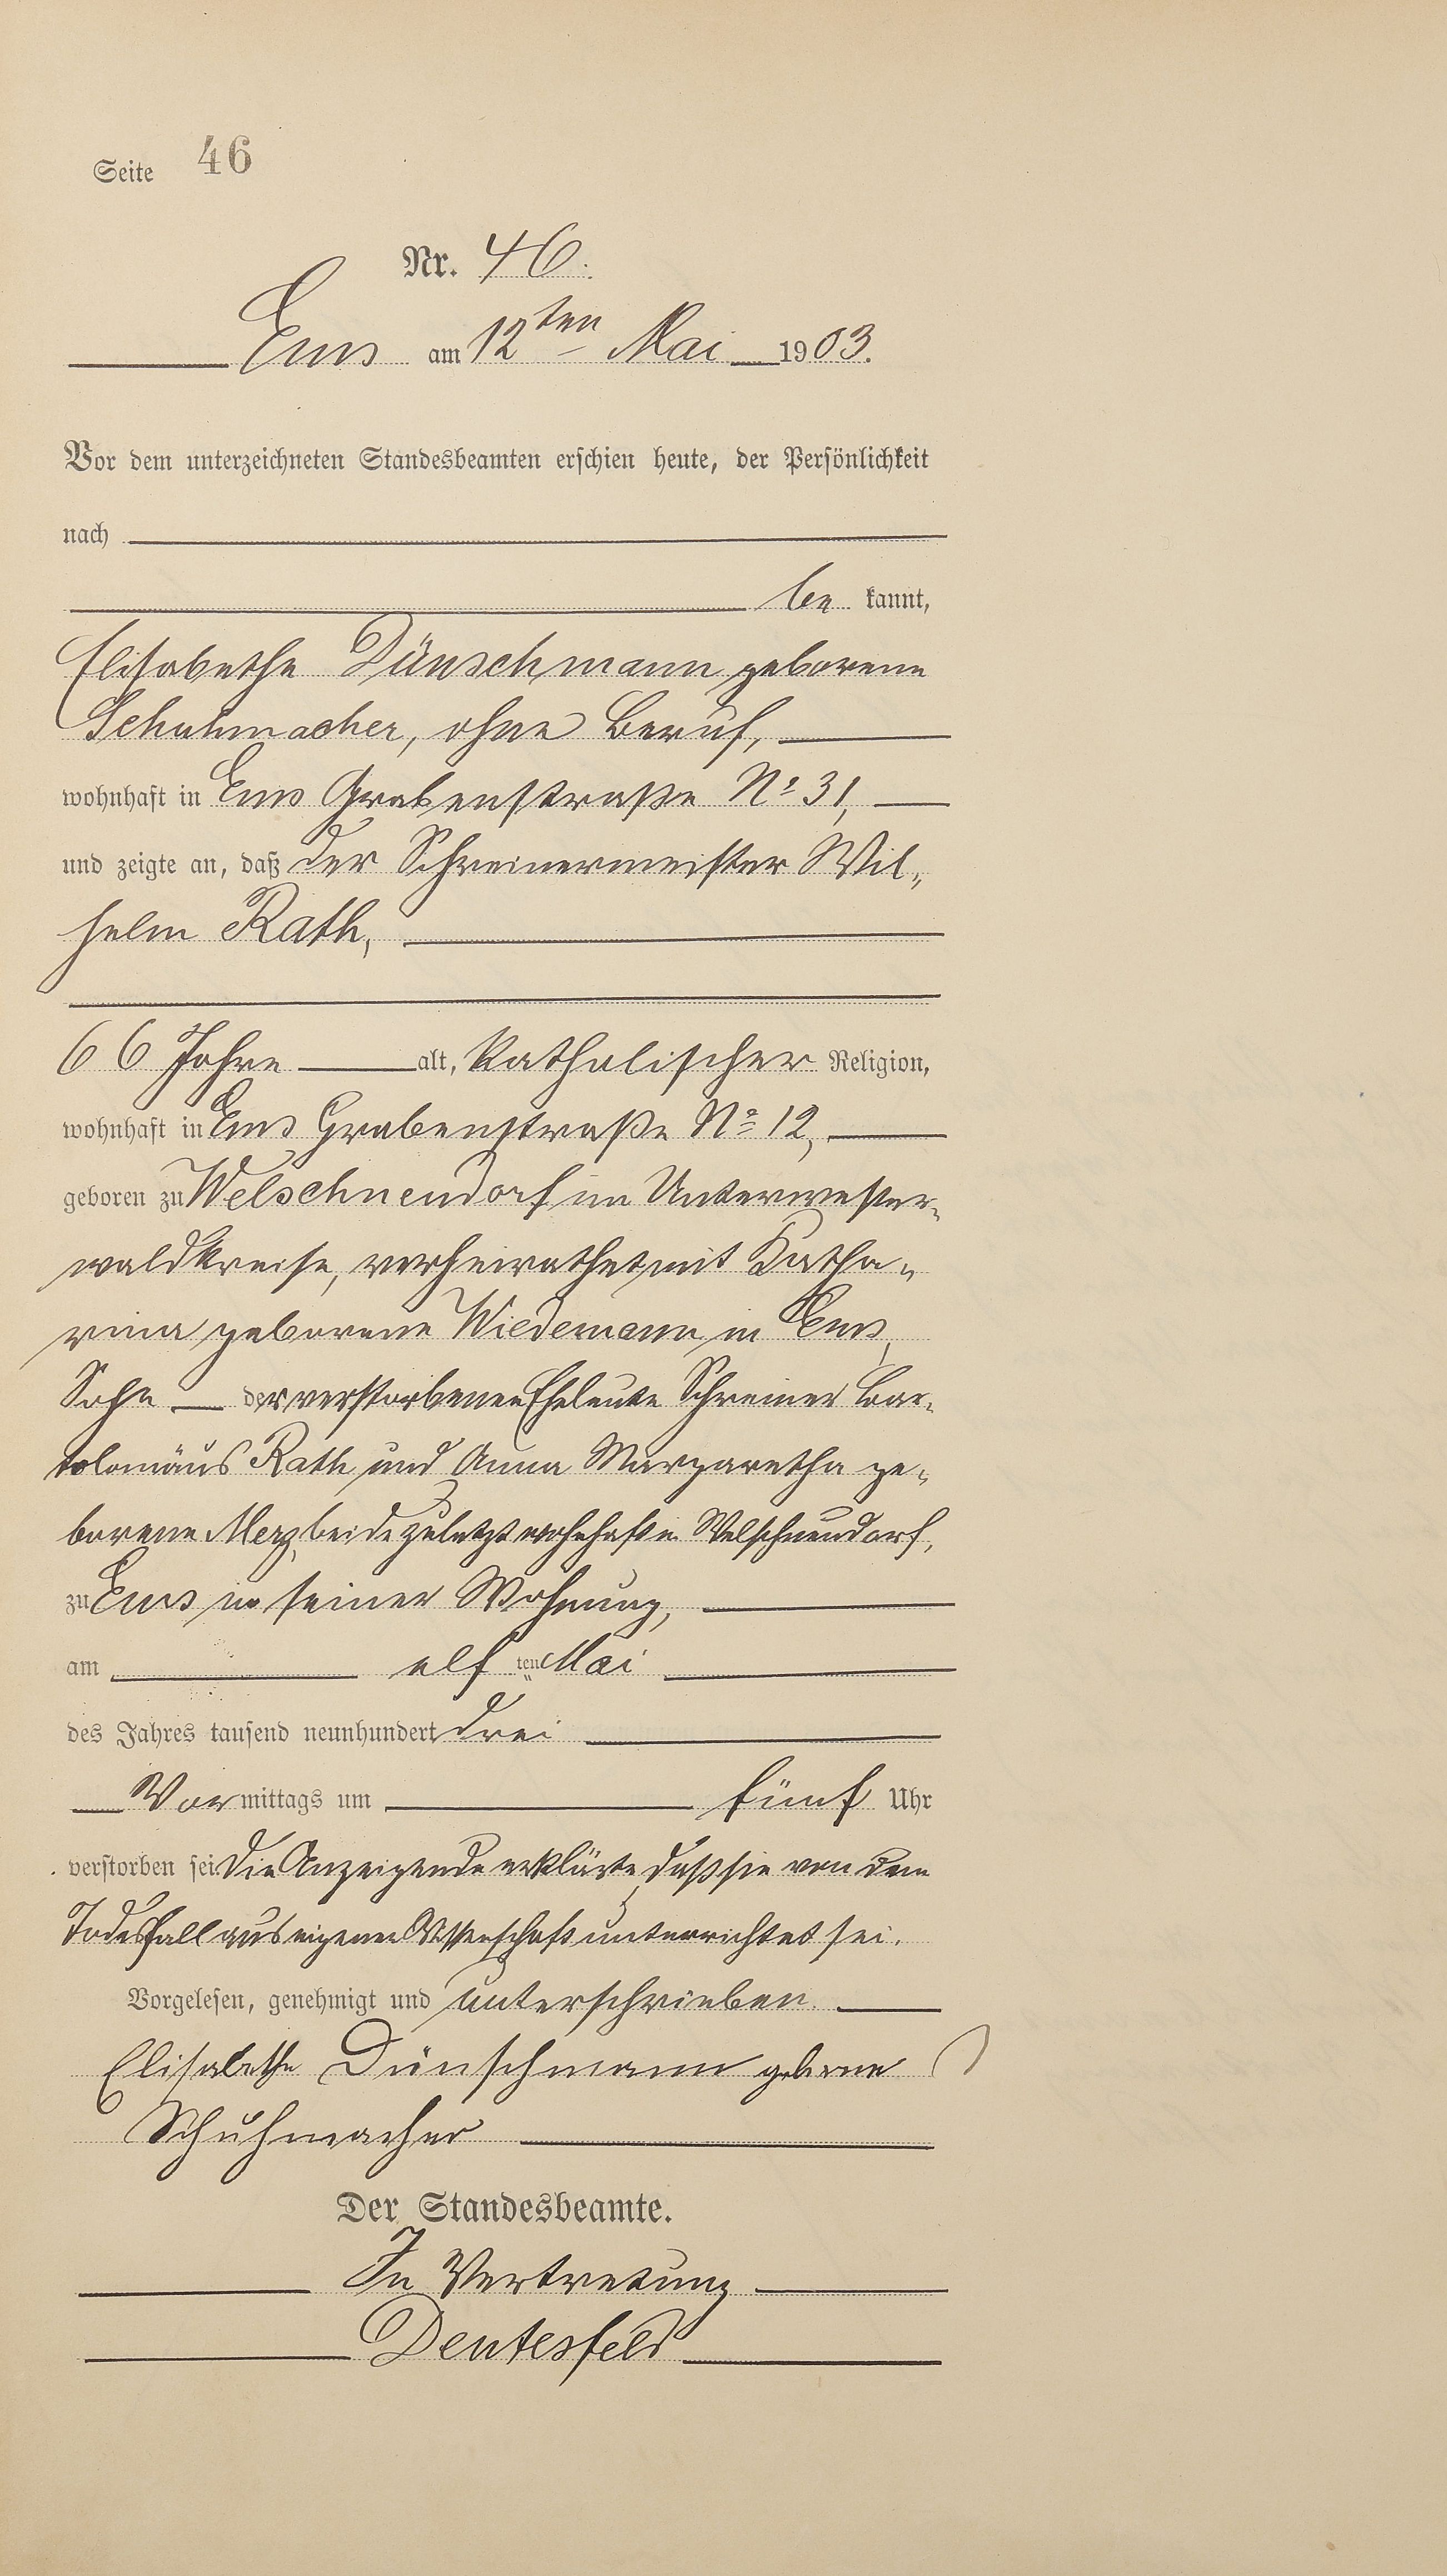 Seite 46
Nr. 46.
Ems am 12ten Mai 1903.
Vor dem unterzeichneten Standesbeamten erschien heute, der Persönlichkeit
nach
be kannt,
Elisabethe Dünschmann geborene
Schuhmacher, ohne Beruf,
wohnhaft in Ems Grabenstraße No 31,
und zeigte an, daß der Schreinermeister Wil„
helm Rath,
66 Jahre alt, katholischer Religion,
wohnhaft in Ems Grabenstraße No 12,
geboren zu Welschneudorf im Unterwester„
waldkreise, verheirathet mit Katha„
rina geborene Wiedemann in Ems,
Sohn der verstorbenen Eheleute Schreiner Bar„
tolomäus Rath und Anna Margaretha ge„
borene Merz, beide zuletzt wohnhaft in Welschneudorf,
zu Ems in seiner Wohnung,
am elf ten Mai
des Jahres tausend neunhundert drei
Vor mittags um fünf Uhr
verstorben sei. Die Anzeigende erklärte, daß sie von dem
Todesfall aus eigener Wissenschaft unterrichtet sei.
Vorgelesen, genehmigt und unterschrieben.
Elisabethe Dünschmann geborne
Schuhmacher
Der Standesbeamte.
In Vertretung